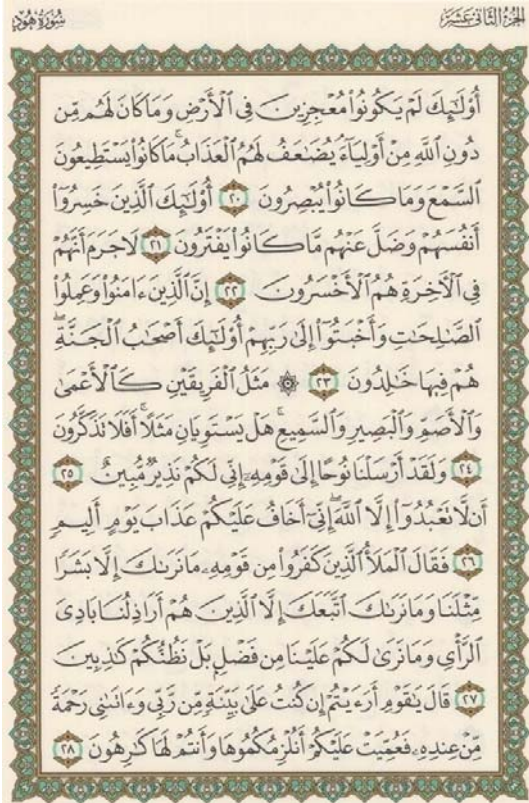 الجزء الثاني عشر
سورة هود
أُوْلَٰٓئِكَ لَمۡ يَكُونُواْ مُعۡجِزِينَ فِي ٱلۡأَرۡضِ وَمَا كَانَ لَهُم مِّن
دُونِ ٱللَّهِ مِنۡ أَوۡلِيَآءَۘ يُضَٰعَفُ لَهُمُ ٱلۡعَذَابُۚ مَا كَانُواْ يَسۡتَطِيعُونَ
ٱلسَّمۡعَ وَمَا كَانُواْ يُبۡصِرُونَ ٢٠ أُوْلَٰٓئِكَ ٱلَّذِينَ خَسِرُوٓاْ
أَنفُسَهُمۡ وَضَلَّ عَنۡهُم مَّا كَانُواْ يَفۡتَرُونَ ٢١ لَا جَرَمَ أَنَّهُمۡ
فِي ٱلۡأٓخِرَةِ هُمُ ٱلۡأَخۡسَرُونَ ٢٢ إِنَّ ٱلَّذِينَ ءَامَنُواْ وَعَمِلُواْ
ٱلصَّٰلِحَٰتِ وَأَخۡبَتُوٓاْ إِلَىٰ رَبِّهِمۡ أُوْلَٰٓئِكَ أَصۡحَٰبُ ٱلۡجَنَّةِۖ
هُمۡ فِيهَا خَٰلِدُونَ ٢٣ ۞ مَثَلُ ٱلۡفَرِيقَيۡنِ كَٱلۡأَعۡمَىٰ
وَٱلۡأَصَمِّ وَٱلۡبَصِيرِ وَٱلسَّمِيعِۚ هَلۡ يَسۡتَوِيَانِ مَثَلًاۚ أَفَلَا تَذَكَّرُونَ
٢٤ وَلَقَدۡ أَرۡسَلۡنَا نُوحًا إِلَىٰ قَوۡمِهِۦٓ إِنِّي لَكُمۡ نَذِيرٞ مُّبِينٌ ٢٥
أَن لَّا تَعۡبُدُوٓاْ إِلَّا ٱللَّهَۖ إِنِّيٓ أَخَافُ عَلَيۡكُمۡ عَذَابَ يَوۡمٍ أَلِيمٖ
٢٦ فَقَالَ ٱلۡمَلَأُ ٱلَّذِينَ كَفَرُواْ مِن قَوۡمِهِۦ مَا نَرَىٰكَ إِلَّا بَشَرٗا
مِّثۡلَنَا وَمَا نَرَىٰكَ ٱتَّبَعَكَ إِلَّا ٱلَّذِينَ هُمۡ أَرَاذِلُنَا بَادِيَ
ٱلرَّأۡيِ وَمَا نَرَىٰ لَكُمۡ عَلَيۡنَا مِن فَضۡلِۭ بَلۡ نَظُنُّكُمۡ كَٰذِبِينَ
٢٧ قَالَ يَٰقَوۡمِ أَرَءَيۡتُمۡ إِن كُنتُ عَلَىٰ بَيِّنَةٖ مِّن رَّبِّي وَءَاتَىٰنِي رَحۡمَةٗ
مِّنۡ عِندِهِۦ فَعُمِّيَتۡ عَلَيۡكُمۡ أَنُلۡزِمُكُمُوهَا وَأَنتُمۡ لَهَا كَٰرِهُونَ ٢٨